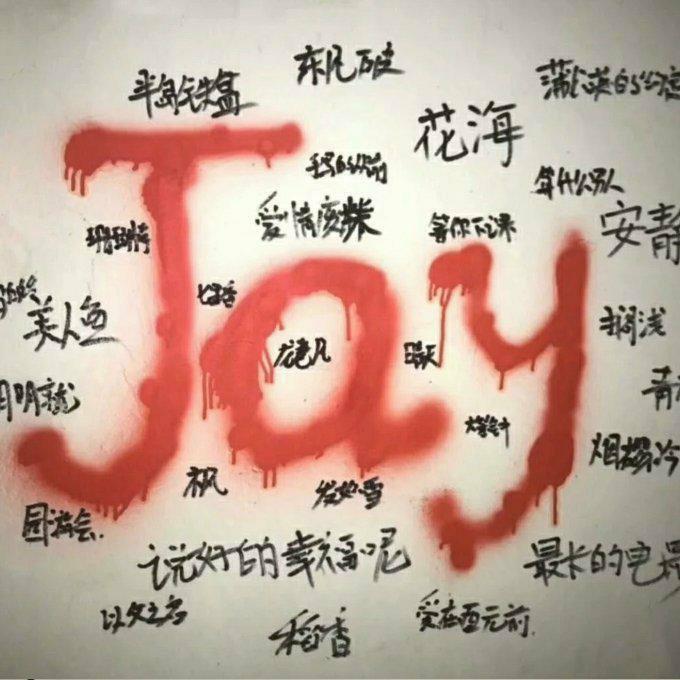 东风破
半岛铁盒
蒲公英的约定
花海
手写的从前
等什么别人
爱情废柴
等你下课
安静
珊瑚海
七里香
美人鱼
龙卷风
晴天
搁浅
明明就
青花
烟花易冷
枫
发如雪
园游会
Jay
说好的幸福呢
最长的电影
以父之名
稻香
爱在西元前